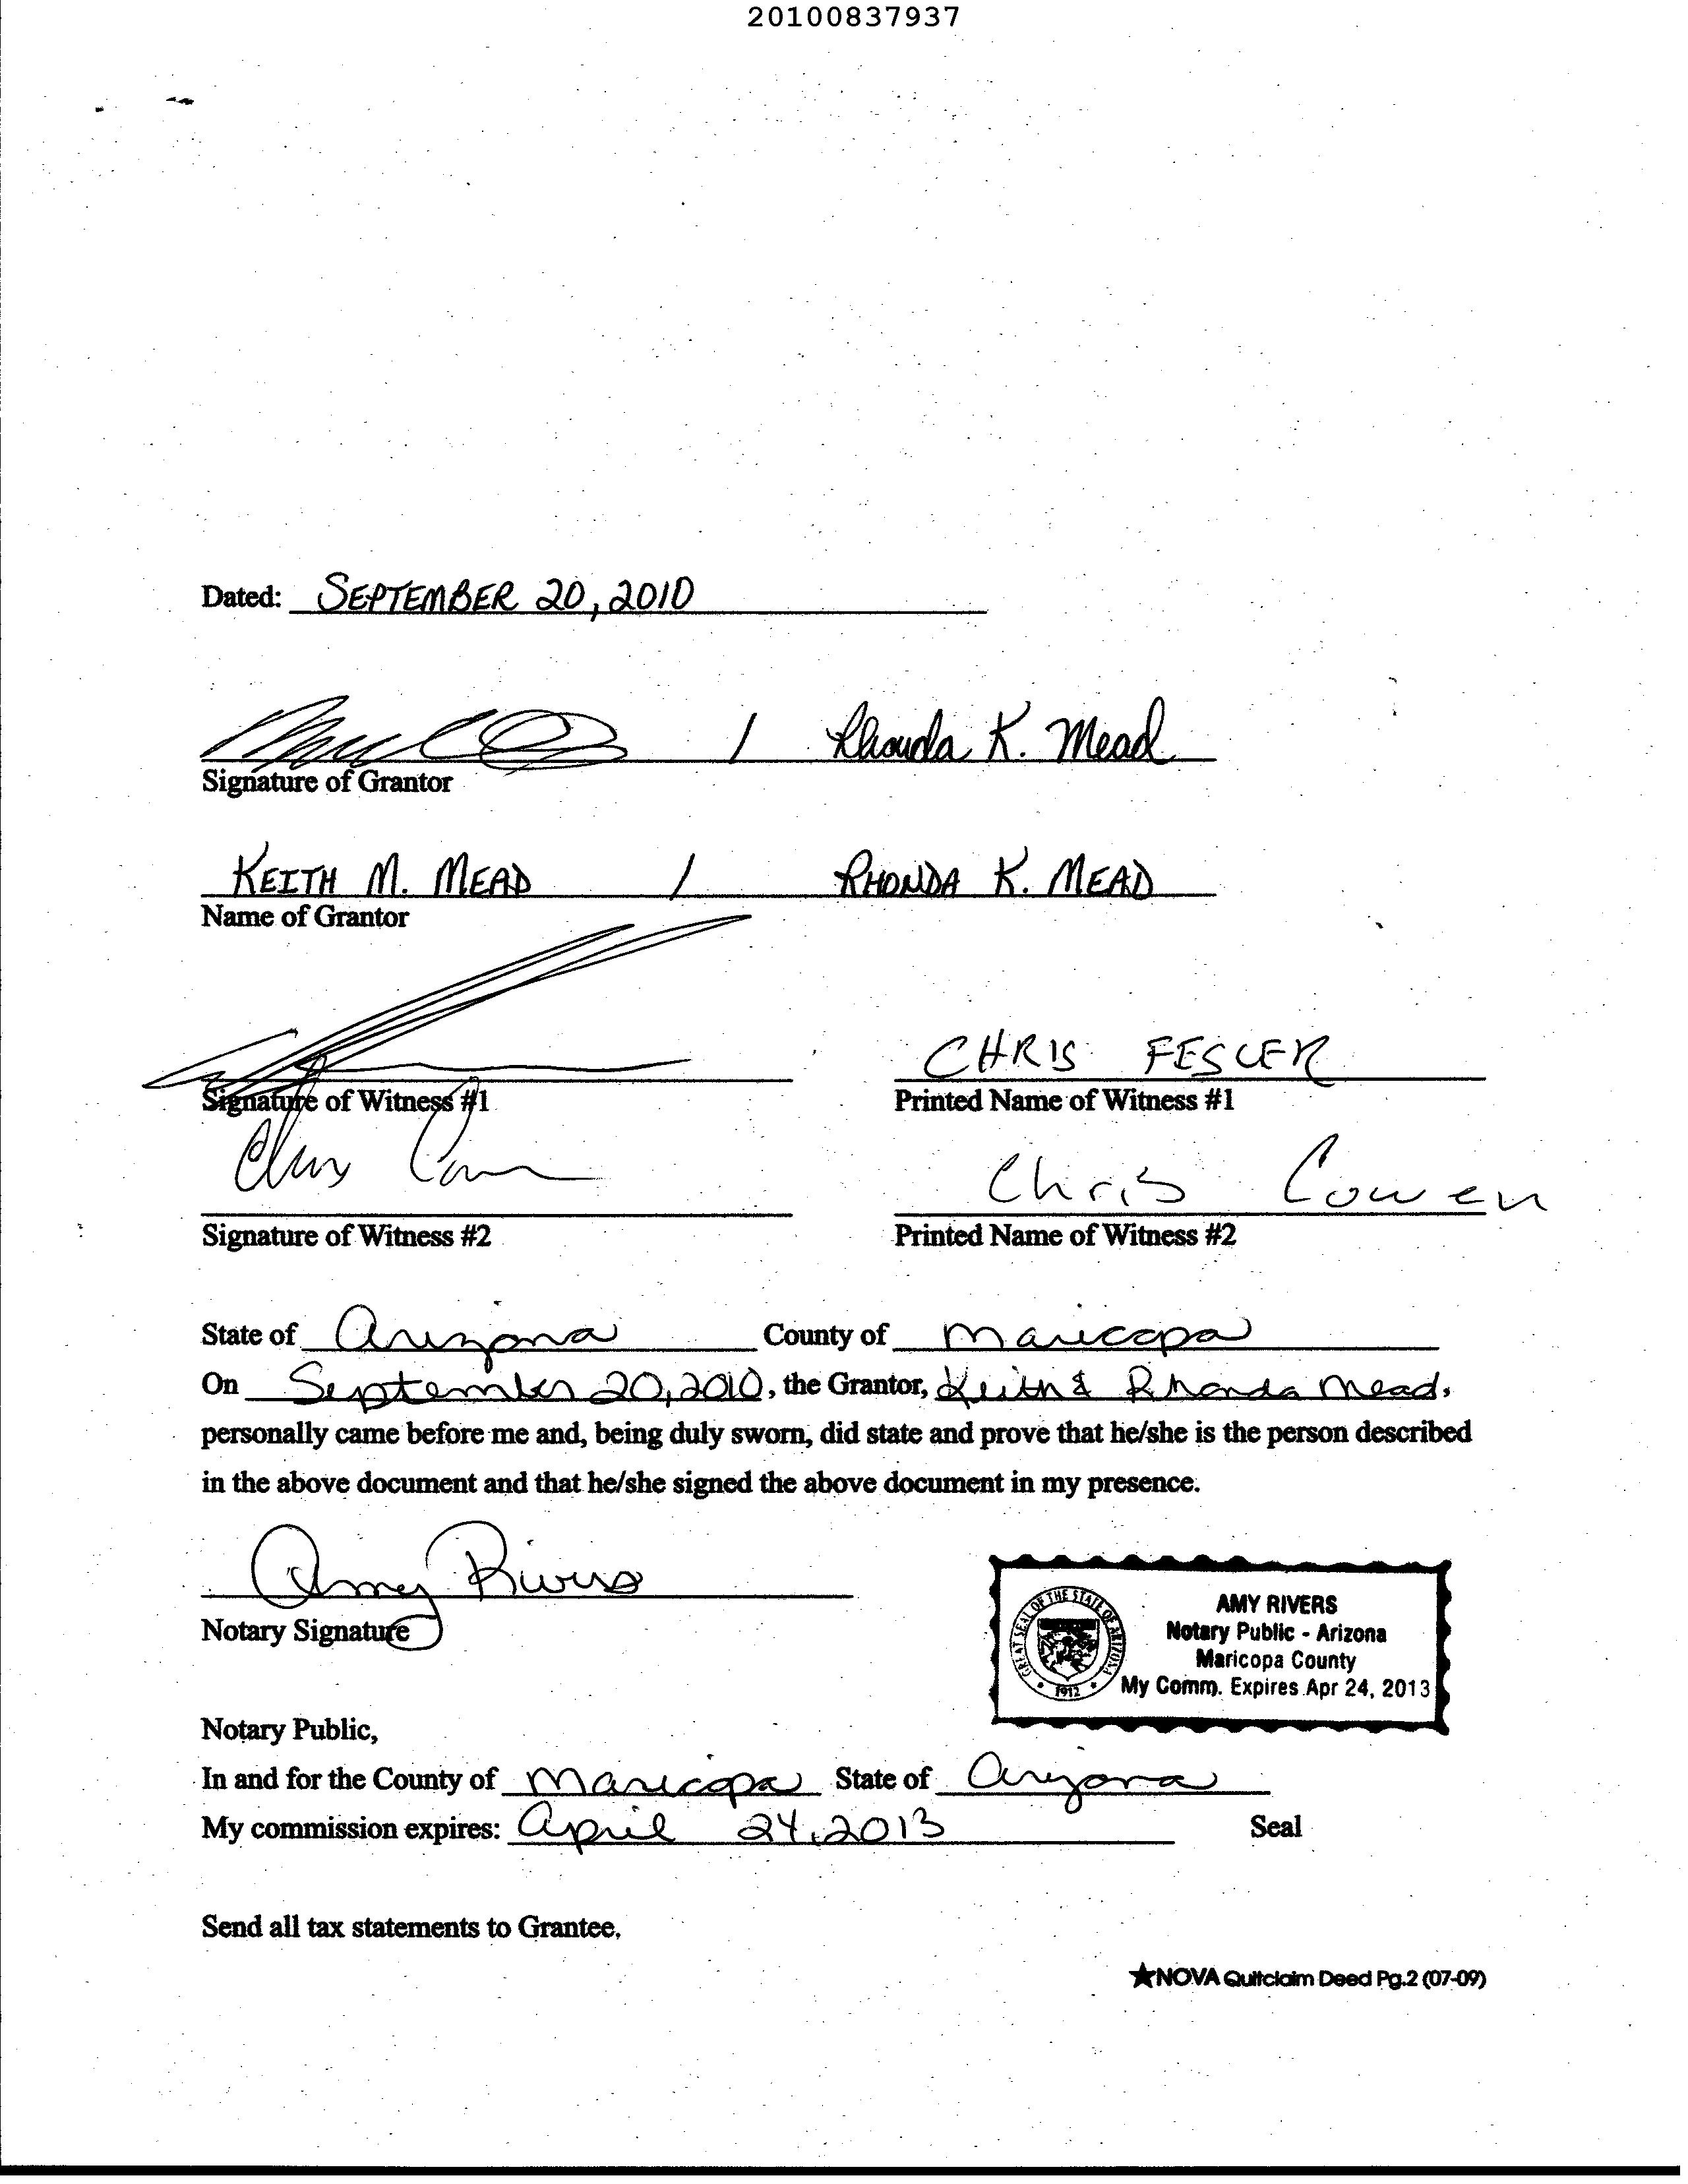 20100837937
Dated: SEPTEMBER 20, 2010
/ Rhonda K. Mead
Signature of Grantor
KEITH M. MEAD / RHONDA K. MEAD
Name of Grantor
CHRIS FESLER
Signature of Witness #1 Printed Name of Witness #1
Chris Cowen
Signature of Witness #2 Printed Name of Witness #2
State of Arizona County of Maricopa
On September 20, 2010, the Grantor, Keith & Rhonda Mead,
personally came before me and, being duly sworn, did state and prove that he/she is the person described
in the above document and that he/she signed the above document in my presence.
Amy Rivers
Notary Signature
GREAT SEAL OF THE STATE OF ARIZONA
1912
AMY RIVERS
Notary Public - Arizona
Maricopa County
My Comm. Expires Apr 24, 2013
Notary Public,
In and for the County of Maricopa State of Arizona
My commission expires: April 24, 2013 Seal
Send all tax statements to Grantee.
★NOVA Quitclaim Deed Pg.2 (07-09)